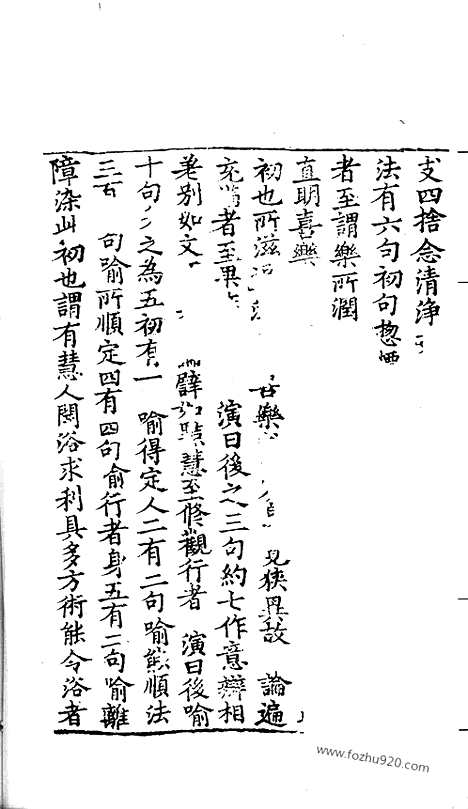 支四捨念清淨
法有六句初句揔
者至謂樂所潤
直明喜樂
初也所滋 樂 見狹異故 論遍
充滿者至果 演曰後之三句約七作意辯相
差別如文 譬如黠慧至修觀行者 演曰後喻
十句々之為五初有一 喻得定人二有二句喻能順法
三有 句喻所順定四有四句喻行者身五有二句喻離
障染此初也謂有慧人閑浴求利具多方術能令浴者
https://www.fozhu920.com/